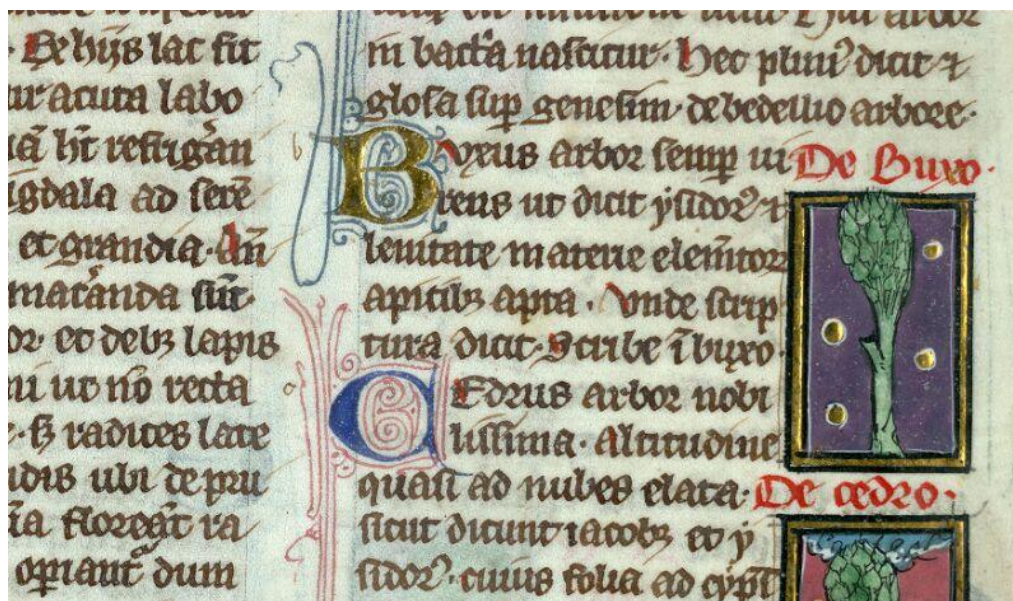 . De hijs lac fit
ur acuta labo
igdala ad serē
et grandia. Am̄
sūt
or. et debꝫ lapis
ni ut nō recta
. sꝫ radices late
ndis ubi de pru
floreāt ra
dum
in bact̄a nascitur. Hec plini᷒ dicit ⁊
glosa sup̄ genesim. de bedellio arbore.
Buxus arbor semp̄ ui
De Buxo.
rens ut dicit ysidor᷒ ⁊
leuitate materie elem̄tor
apicibꝫ apta. Vnde scrip
tura dicit. Scribe ī buxo.
Cedrus arbor nobi
lissima. Altitudine
quasi ad nubes elata.
De cedro.
sicut dicunt iacobꝫ et y
sidor᷒. cuius folia ad cyp̄ſ